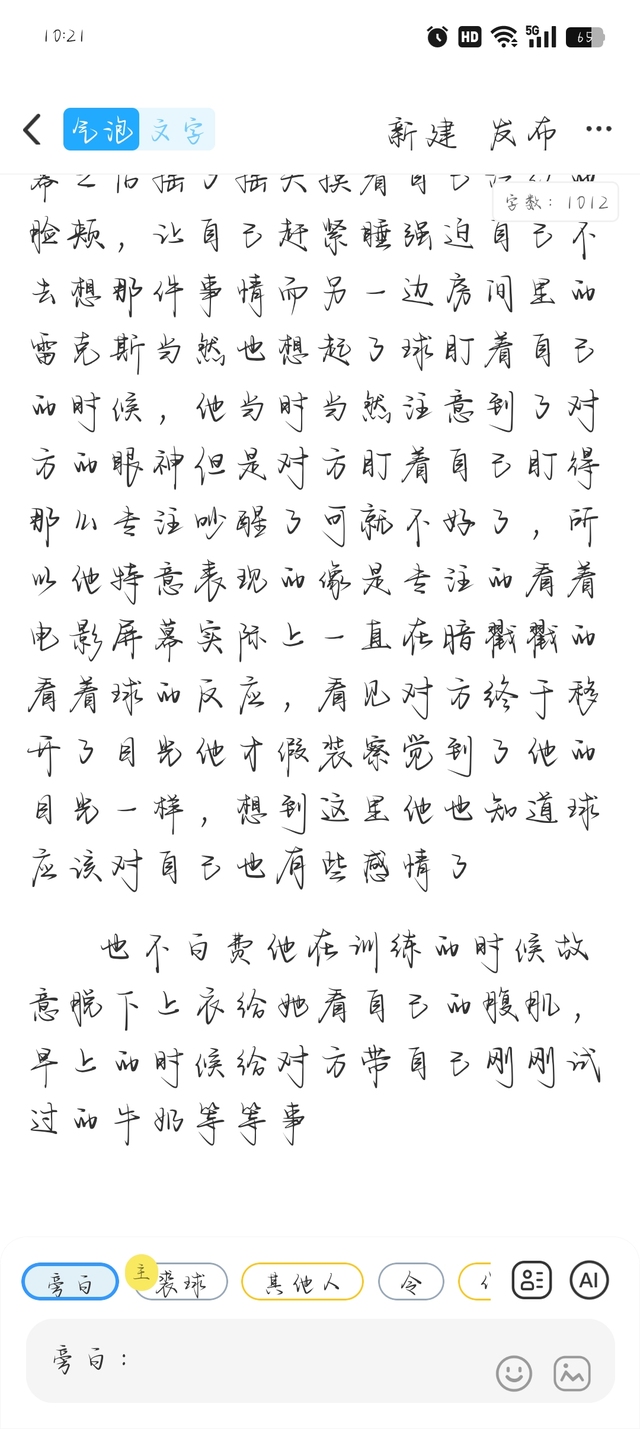 10:21
HD 5G 65
气泡 文字 新建 发布 ...
字数：1012
脸颊，让自己赶紧睡强迫自己不
去想那件事情而另一边房间里的
雷克斯当然也想起了球盯着自己
的时候，他当时当然注意到了对
方的眼神但是对方盯着自己盯得
那么专注吵醒了可就不好了，所
以他特意表现的像是专注的看着
电影屏幕实际上一直在暗戳戳的
看着球的反应，看见对方终于移
开了目光他才假装察觉到了他的
目光一样，想到这里他也知道球
应该对自己也有些感情了
也不白费他在训练的时候故
意脱下上衣给她看自己的腹肌，
早上的时候给对方带自己刚刚试
过的牛奶等等事
旁白 主 裘球 其他人 令
AI
旁白：